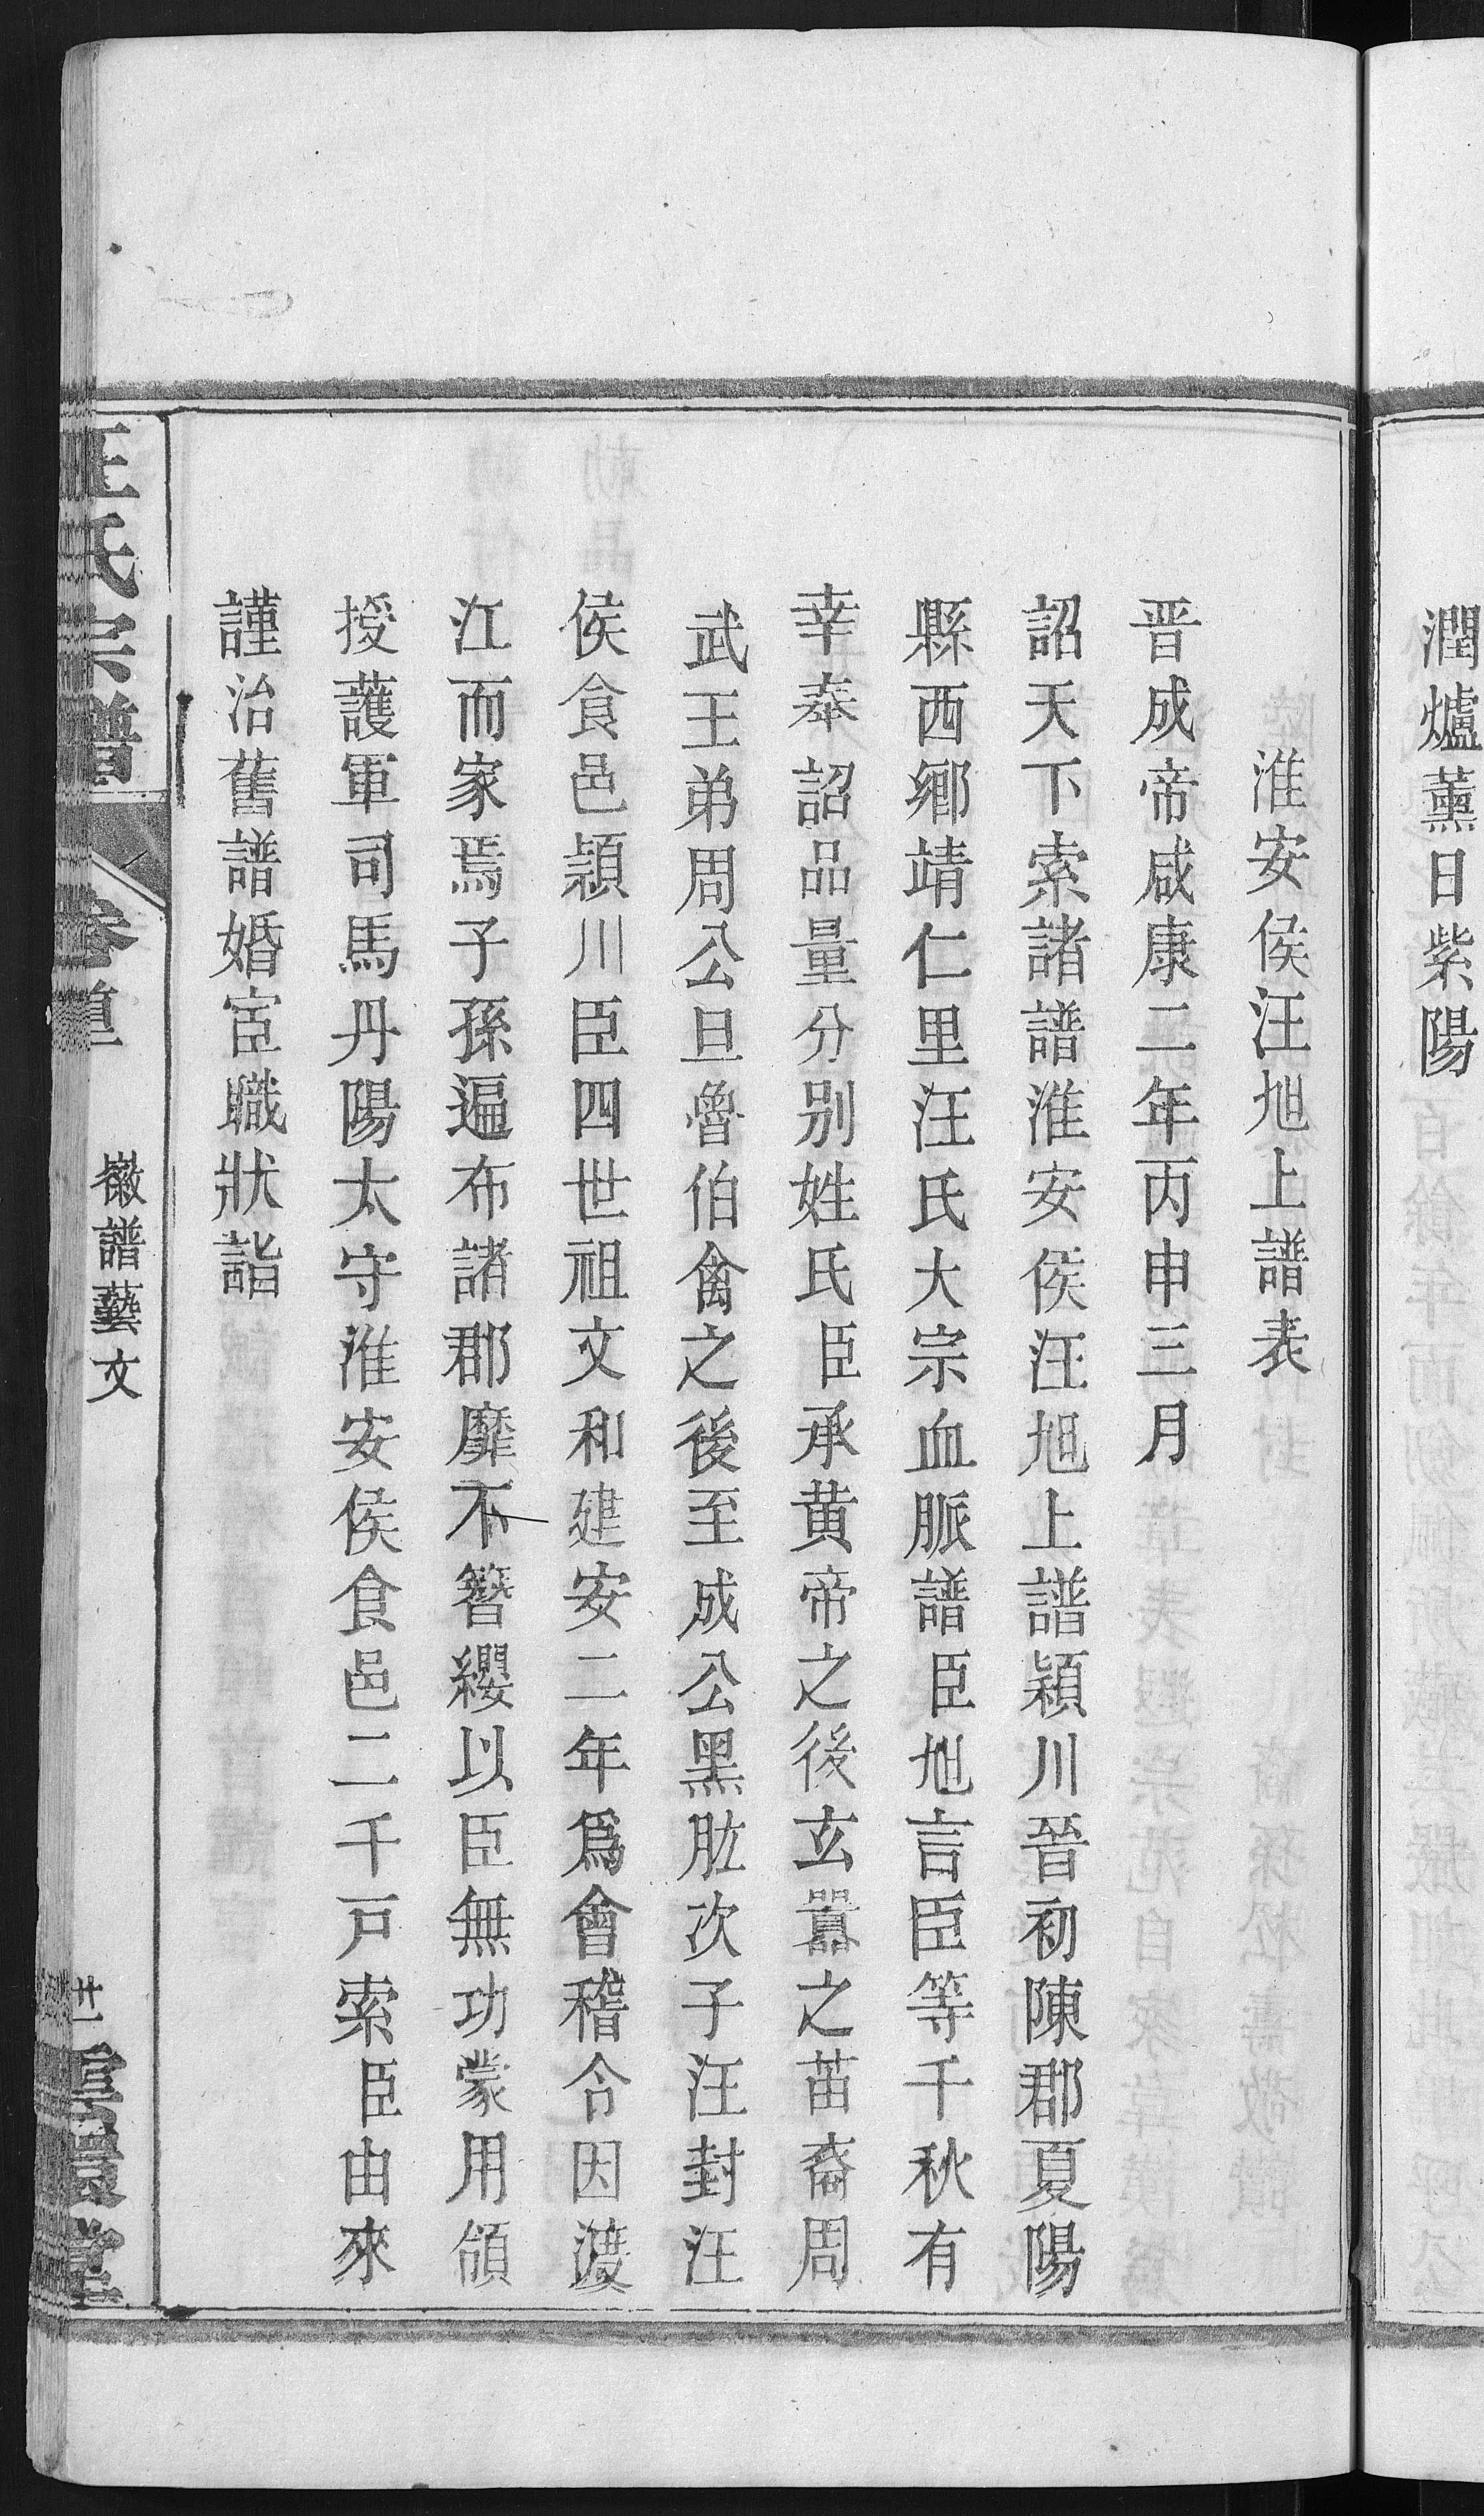 潤爐薰日紫陽
淮安侯汪旭上譜表
晋成帝咸康二年丙申三月
詔天下索諸譜淮安侯汪旭上譜潁川晉初陳郡夏陽
縣西鄉靖仁里汪氏大宗血脈譜臣旭言臣等千秋有
幸奉詔品量分別姓氏臣承黃帝之後玄囂之苗裔周
武王弟周公旦魯伯禽之後至成公黑肱次子汪封汪
侯食邑潁川臣四世祖文和建安二年爲會稽令因渡
江而家焉子孫遍布諸郡靡不簪纓以臣無功蒙用頒
授護軍司馬丹陽太守淮安侯食邑二千戸索臣由來
謹治舊譜婚宦職狀詣
汪氏宗譜
卷首
徽譜藝文
廿一